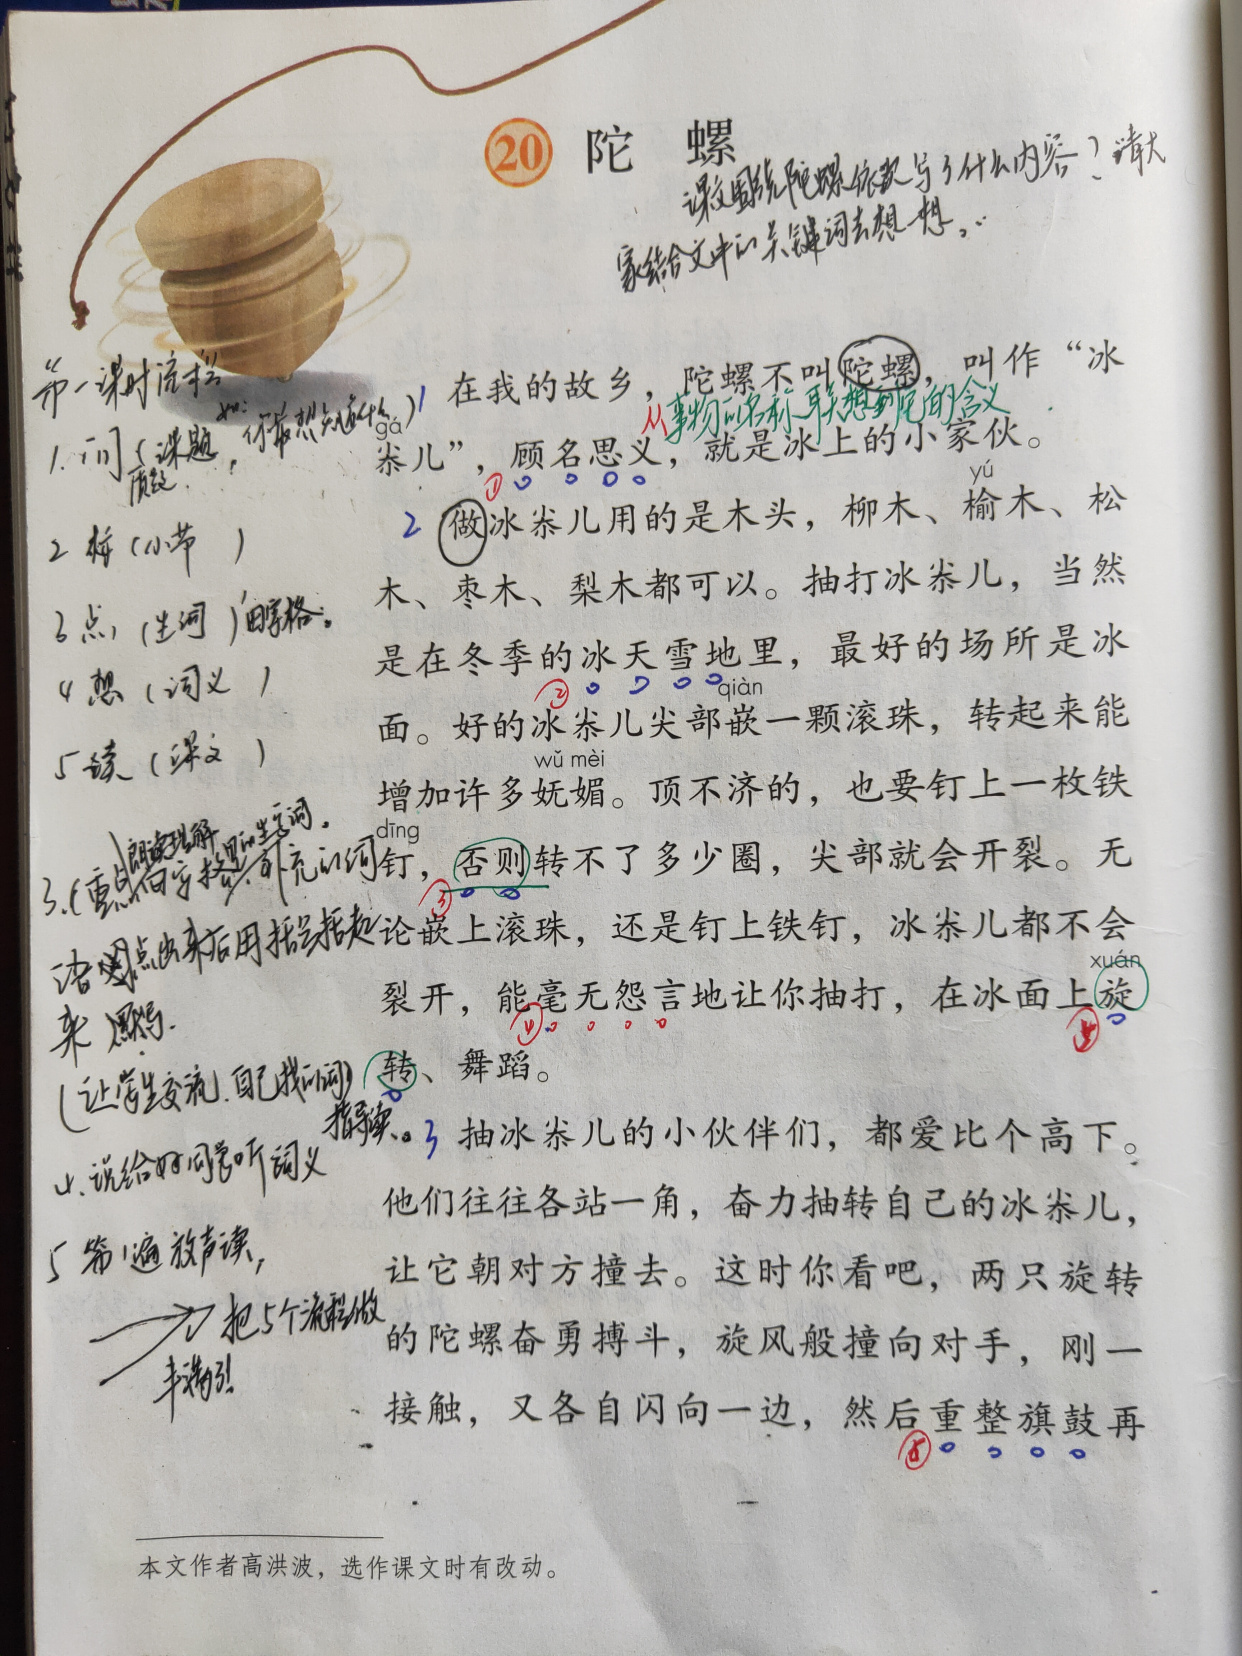 20 陀 螺
课文围绕陀螺依次写了什么内容？请大
家结合文中的关键词去想一想。
第一课时流程
1.问（课题
质疑
如：你最想知道什么）
2 标（小节 ）
3 点（生词）田字格。
4 想（词义 ）
5 读（课文 ）
1 在我的故乡，陀螺不叫陀螺，叫作“冰
从事物的名称联想到它的含义
gá
尜儿”，顾名思义，就是冰上的小家伙。
①
yú
2 做冰尜儿用的是木头，柳木、榆木、松
木、枣木、梨木都可以。抽打冰尜儿，当然
是在冬季的冰天雪地里，最好的场所是冰
②
qiàn
面。好的冰尜儿尖部嵌一颗滚珠，转起来能
wǔ mèi
增加许多妩媚。顶不济的，也要钉上一枚铁
dīng
钉，否则转不了多少圈，尖部就会开裂。无
③
论嵌上滚珠，还是钉上铁钉，冰尜儿都不会
xuán
裂开，能毫无怨言地让你抽打，在冰面上旋
④
转、舞蹈。
3 抽冰尜儿的小伙伴们，都爱比个高下。
他们往往各站一角，奋力抽转自己的冰尜儿，
让它朝对方撞去。这时你看吧，两只旋转
的陀螺奋勇搏斗，旋风般撞向对手，刚一
接触，又各自闪向一边，然后重整旗鼓再
3.（重点
朗读理解
补充的词
语用点出来后用括号括起
来
（让学生交流自己找的词）
指导读。
4.说给好同学听词义
5 第1遍放声读，
把5个流程做
丰满了！
本文作者高洪波，选作课文时有改动。